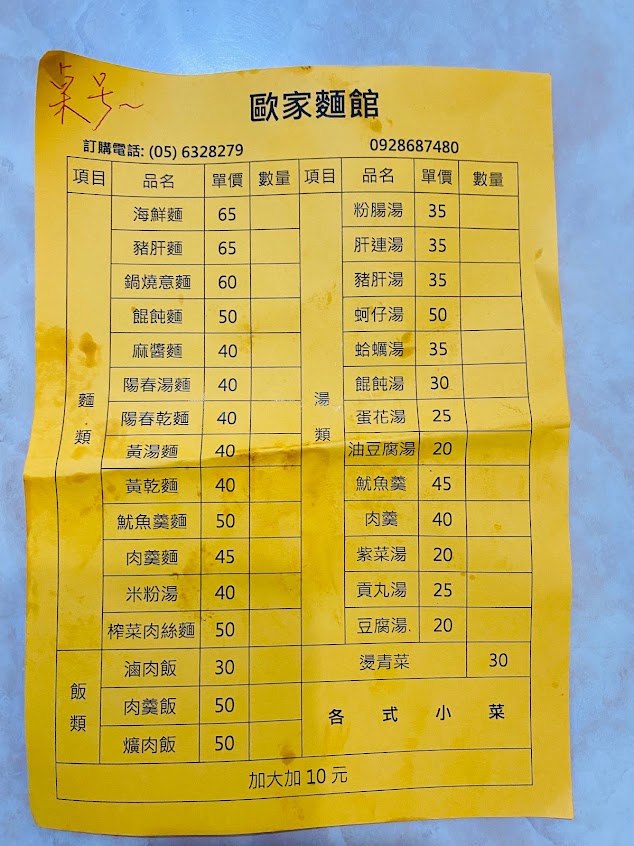 桌号~
歐家麵館
訂購電話: (05) 6328279 0928687480
項目 品名 單價 數量 項目 品名 單價 數量
麵類
海鮮麵 65
豬肝麵 65
鍋燒意麵 60
餛飩麵 50
麻醬麵 40
陽春湯麵 40
陽春乾麵 40
黃湯麵 40
黃乾麵 40
魷魚羹麵 50
肉羹麵 45
米粉湯 40
榨菜肉絲麵 50
飯類
滷肉飯 30
肉羹飯 50
爌肉飯 50
湯類
粉腸湯 35
肝連湯 35
豬肝湯 35
蚵仔湯 50
蛤蠣湯 35
餛飩湯 30
蛋花湯 25
油豆腐湯 20
魷魚羹 45
肉羹 40
紫菜湯 20
貢丸湯 25
豆腐湯. 20
燙青菜 30
各式小菜
加大加 10 元